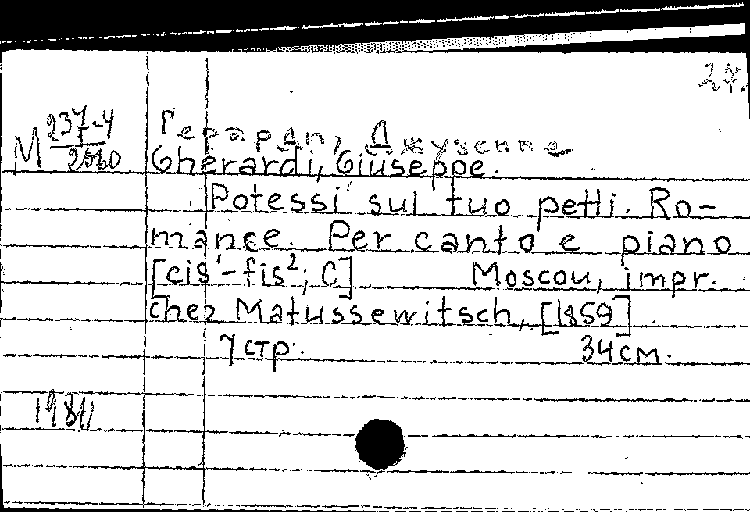 27.
Герарди, Джузеппе
М 237-4
2560
Gherardi, Giuseppe.
Potessi sul tuo petti. Ro-
mance. Per canto e piano
[cis¹-fis²; C] Moscou, impr.
chez Matussewitsch, [1859]
7 стр. 34 см.